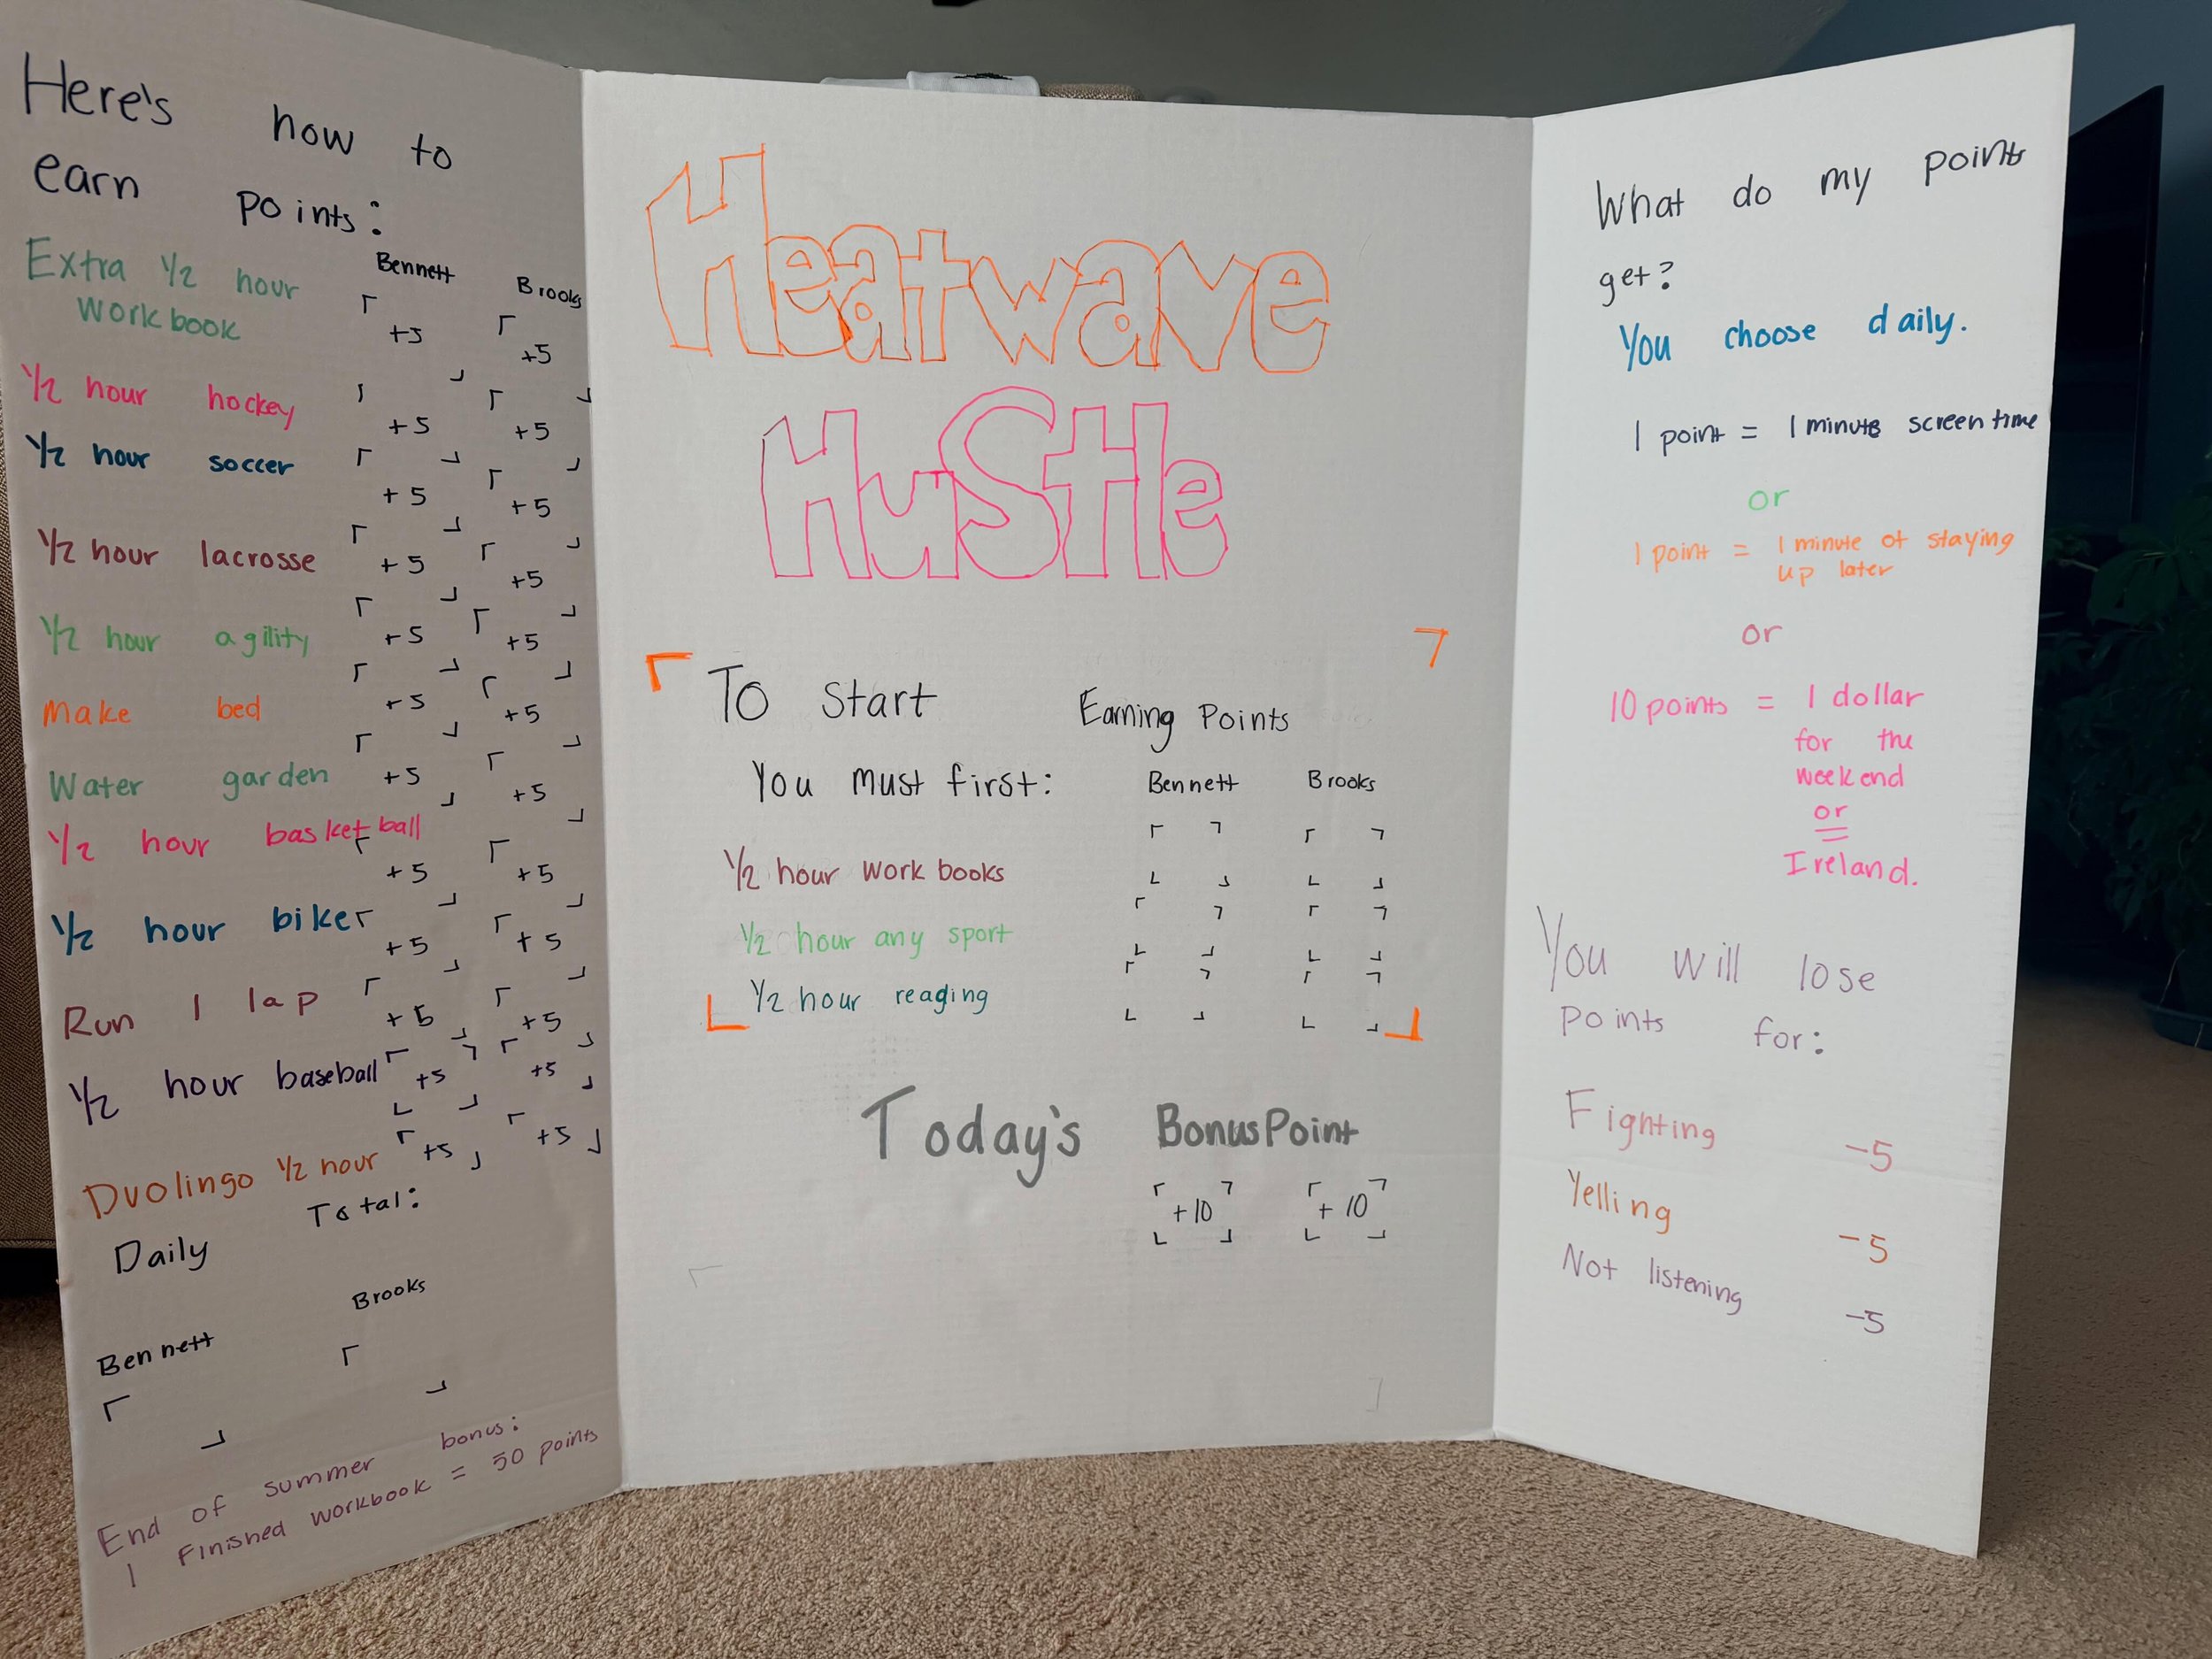 Here's how to
earn points:
Bennett Brooks
Extra 1/2 hour
Workbook
+5 +5
1/2 hour hockey +5 +5
1/2 hour soccer +5 +5
1/2 hour lacrosse +5 +5
1/2 hour agility +5 +5
Make bed +5 +5
Water garden +5 +5
1/2 hour basketball +5 +5
1/2 hour bike +5 +5
Run 1 lap +5 +5
1/2 hour baseball +5 +5
Duolingo 1/2 hour +5 +5
Daily Total:
Bennett Brooks
End of summer bonus:
1 Finished workbook = 50 points
Heatwave
HuStle
To Start Earning Points
You must first: Bennett Brooks
1/2 hour work books
1/2 hour any sport
1/2 hour reading
Today's Bonus Point
+10 +10
What do my points
get?
You choose daily.
1 point = 1 minute screen time
or
1 point = 1 minute of staying
up later
or
10 points = 1 dollar
for the
weekend
or
Ireland.
You will lose
points for:
Fighting -5
Yelling -5
Not listening -5